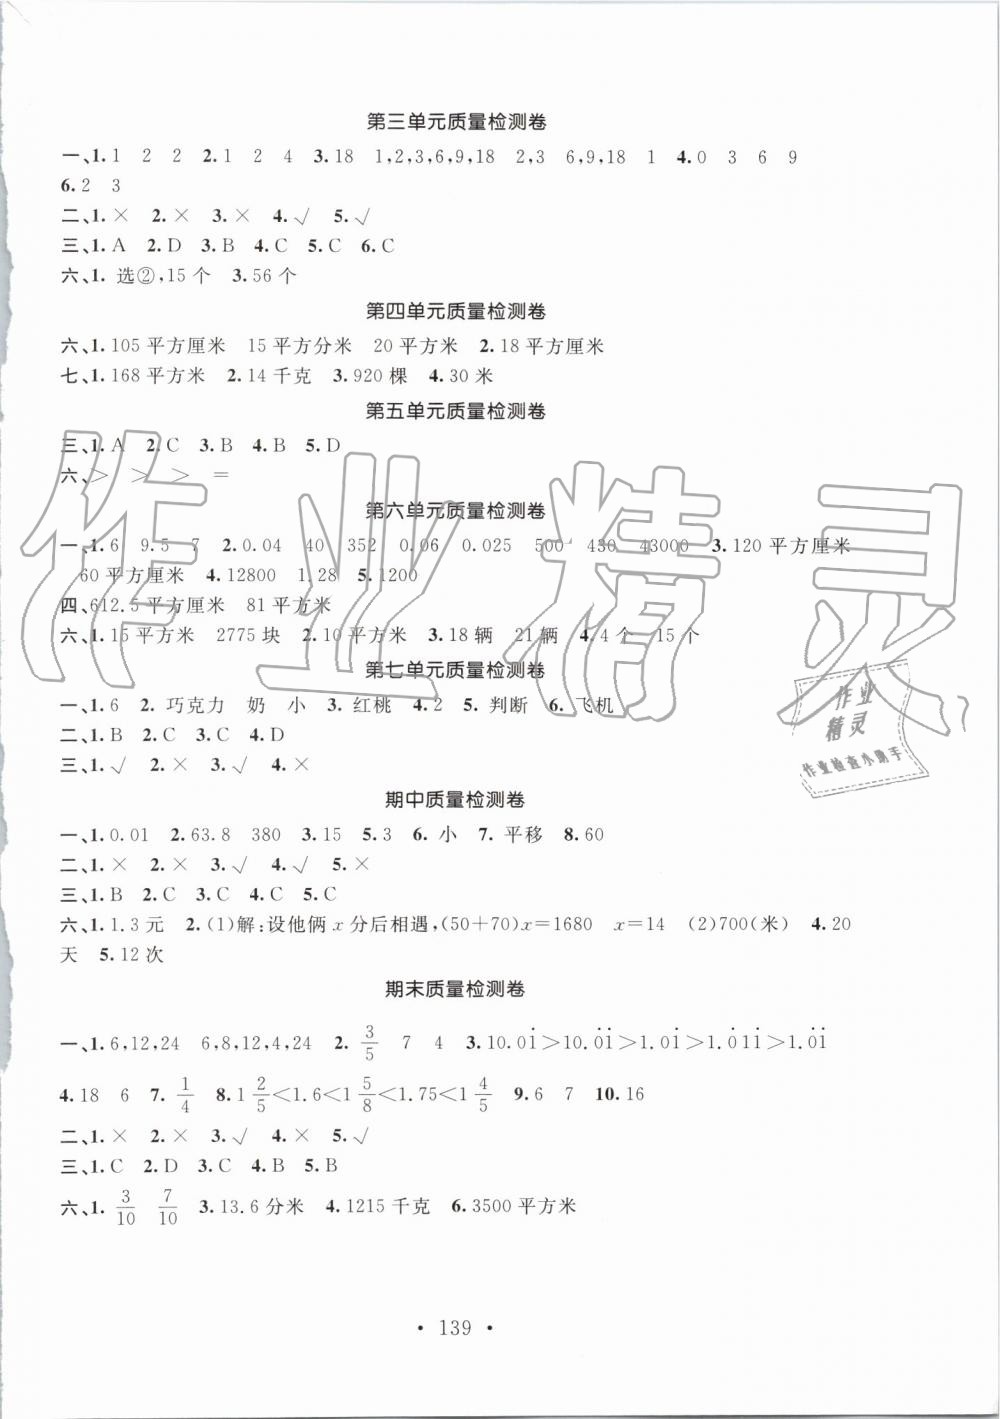 第三单元质量检测卷
一、1.1 2 2 2.1 2 4 3.18 1,2,3,6,9,18 2,3 6,9,18 1 4.0 3 6 9
6.2 3
二、1.× 2.× 3.× 4.√ 5.√
三、1.A 2.D 3.B 4.C 5.C 6.C
六、1. 选②,15个 3.56个
第四单元质量检测卷
六、1.105平方厘米 15平方分米 20平方米 2.18平方厘米
七、1.168平方米 2.14千克 3.920棵 4.30米
第五单元质量检测卷
三、1.A 2.C 3.B 4.B 5.D
六、> > > =
第六单元质量检测卷
一、1.6 9.5 7 2.0.04 40 352 0.06 0.025 500 430 43000 3.120平方厘米
60平方厘米 4.12800 1.28 5.1200
四、612.5平方厘米 81平方米
六、1.15平方米 2775块 2.10平方米 3.18辆 21辆 4.4个 15个
第七单元质量检测卷
一、1.6 2. 巧克力 奶 小 3. 红桃 4.2 5. 判断 6. 飞机
二、1.B 2.C 3.C 4.D
三、1.√ 2.× 3.√ 4.×
期中质量检测卷
一、1.0.01 2.63.8 380 3.15 5.3 6. 小 7. 平移 8.60
二、1.× 2.× 3.√ 4.√ 5.×
三、1.B 2.C 3.C 4.C 5.C
六、1.1.3元 2.(1)解:设他俩x分后相遇,(50+70)x=1680 x=14 (2)700(米) 4.20
天 5.12次
期末质量检测卷
一、1.6,12,24 6,8,12,4,24 2. 3/5 7 4 3.10.01̇>10.0̇1̇>1.01̇>1.0̇11̇>1.0̇1̇
4.18 6 7. 1/4 8.1 2/5<1.6<1 5/8<1.75<1 4/5 9.6 7 10.16
二、1.× 2.× 3.√ 4.× 5.√
三、1.C 2.D 3.C 4.B 5.B
六、1. 3/10 7/10 3.13.6分米 4.1215千克 6.3500平方米
• 139 •
作业精灵
作业
精灵
作业检查小助手